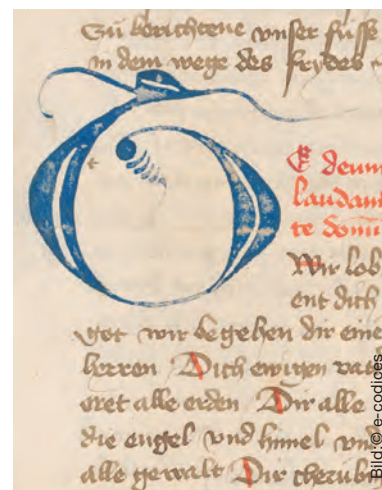 Zü berichtene vnser füsse
in dem wege des frydes
Te deum
laudam
te domi
Wir lob
ent dich
got wir begehen dir eine
herren Dich ewigen vat
eret alle erden Dir alle
die engel vnd himel vnd
alle gewalt Dir cherubi
Bild: © e-codices